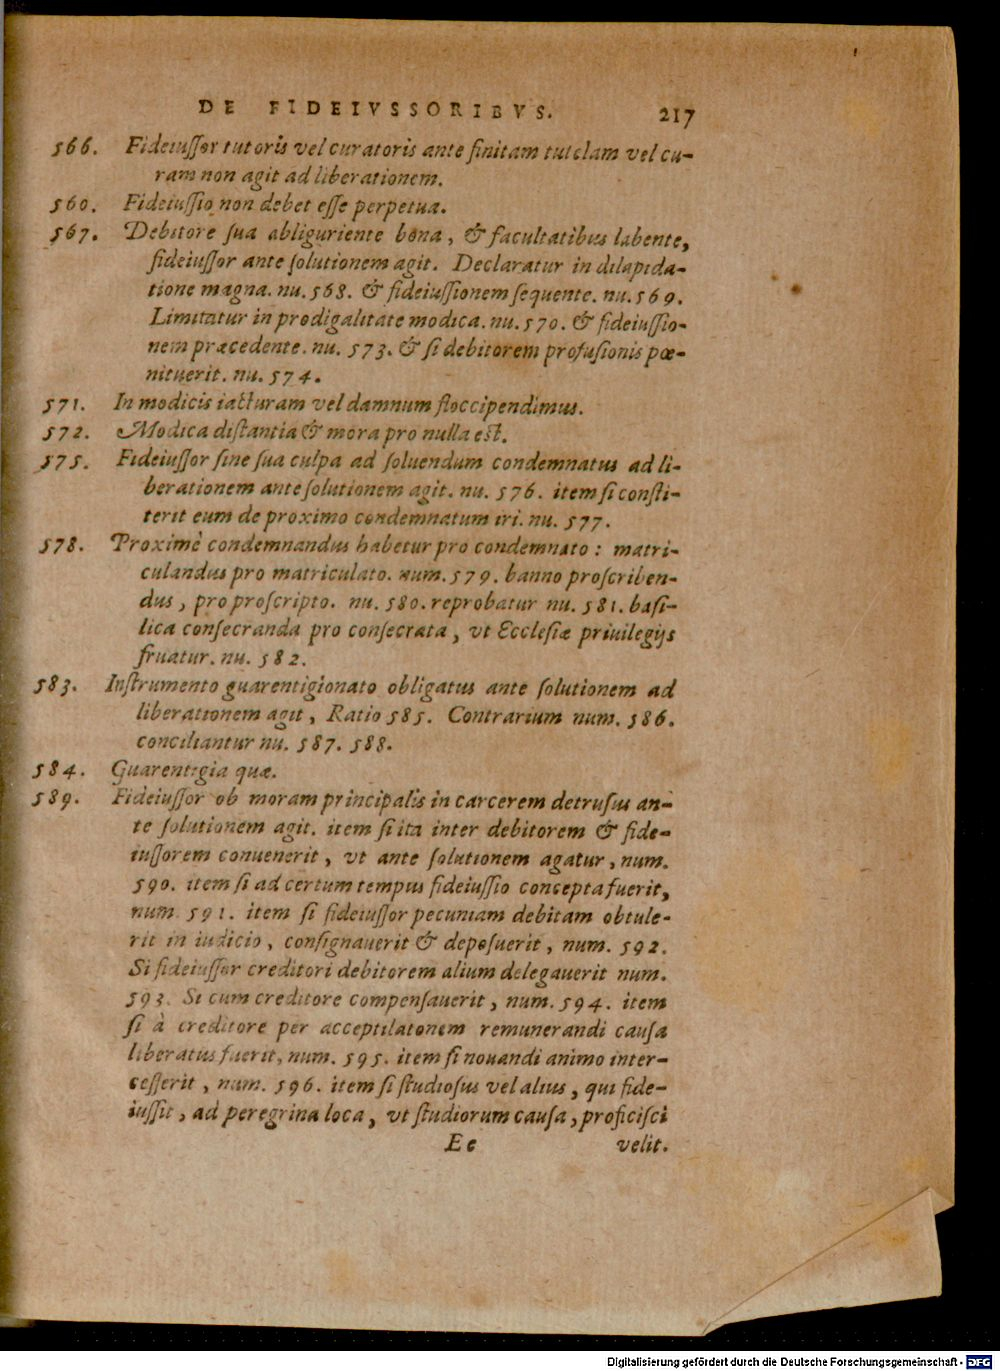 DE FIDEIVSSORIBVS. 217
566. Fideiuſſor tutoris vel curatoris ante finitam tutelam vel cu-
ram non agit ad liberationem.
560. Fideiuſſio non debet eſſe perpetua.
567. Debitore ſua abliguriente bona, & facultatibus labente,
fideiuſſor ante ſolutionem agit. Declaratur in dilapida-
tione magna. nu. 568. & fideiuſſionem ſequente. nu. 569.
Limitatur in prodigalitate modica. nu. 570. & fideiuſſio-
nem præcedente. nu. 573. & ſi debitorem profuſionis pœ-
nituerit. nu. 574.
571. In modicis iacturam vel damnum floccipendimus.
572. Modica diſtantia & mora pro nulla eſt.
575. Fideiuſſor ſine ſua culpa ad ſoluendum condemnatus ad li-
berationem ante ſolutionem agit. nu. 576. item ſi conſti-
terit eum de proximo condemnatum iri. nu. 577.
578. Proximè condemnandus habetur pro condemnato: matri-
culandus pro matriculato. num. 579. banno proſcriben-
dus, pro proſcripto. nu. 580. reprobatur nu. 581. baſi-
lica conſecranda pro conſecrata, vt Eccleſiæ priuilegijs
fruatur. nu. 582.
583. Inſtrumento guarentigionato obligatus ante ſolutionem ad
liberationem agit, Ratio 585. Contrarium num. 586.
conciliantur nu. 587. 588.
584. Guarentigia quæ.
589. Fideiuſſor ob moram principalis in carcerem detruſus an-
te ſolutionem agit. item ſi ita inter debitorem & fide-
iuſſorem conuenerit, vt ante ſolutionem agatur, num.
590. item ſi ad certum tempus fideiuſſio concepta fuerit,
num. 591. item ſi fideiuſſor pecuniam debitam obtule-
rit in iudicio, conſignauerit & depoſuerit, num. 592.
Si fideiuſſor creditori debitorem alium delegauerit num.
593. Si cum creditore compenſauerit, num. 594. item
ſi à creditore per acceptilatonem remunerandi cauſa
liberatus fuerit, num. 595. item ſi nouandi animo inter-
ceſſerit, num. 596. item ſi ſtudioſus vel alius, qui fide-
iuſſit, ad peregrina loca, vt ſtudiorum cauſa, proficiſci
Ee velit.
Digitalisierung gefördert durch die Deutsche Forschungsgemeinschaft - DFG